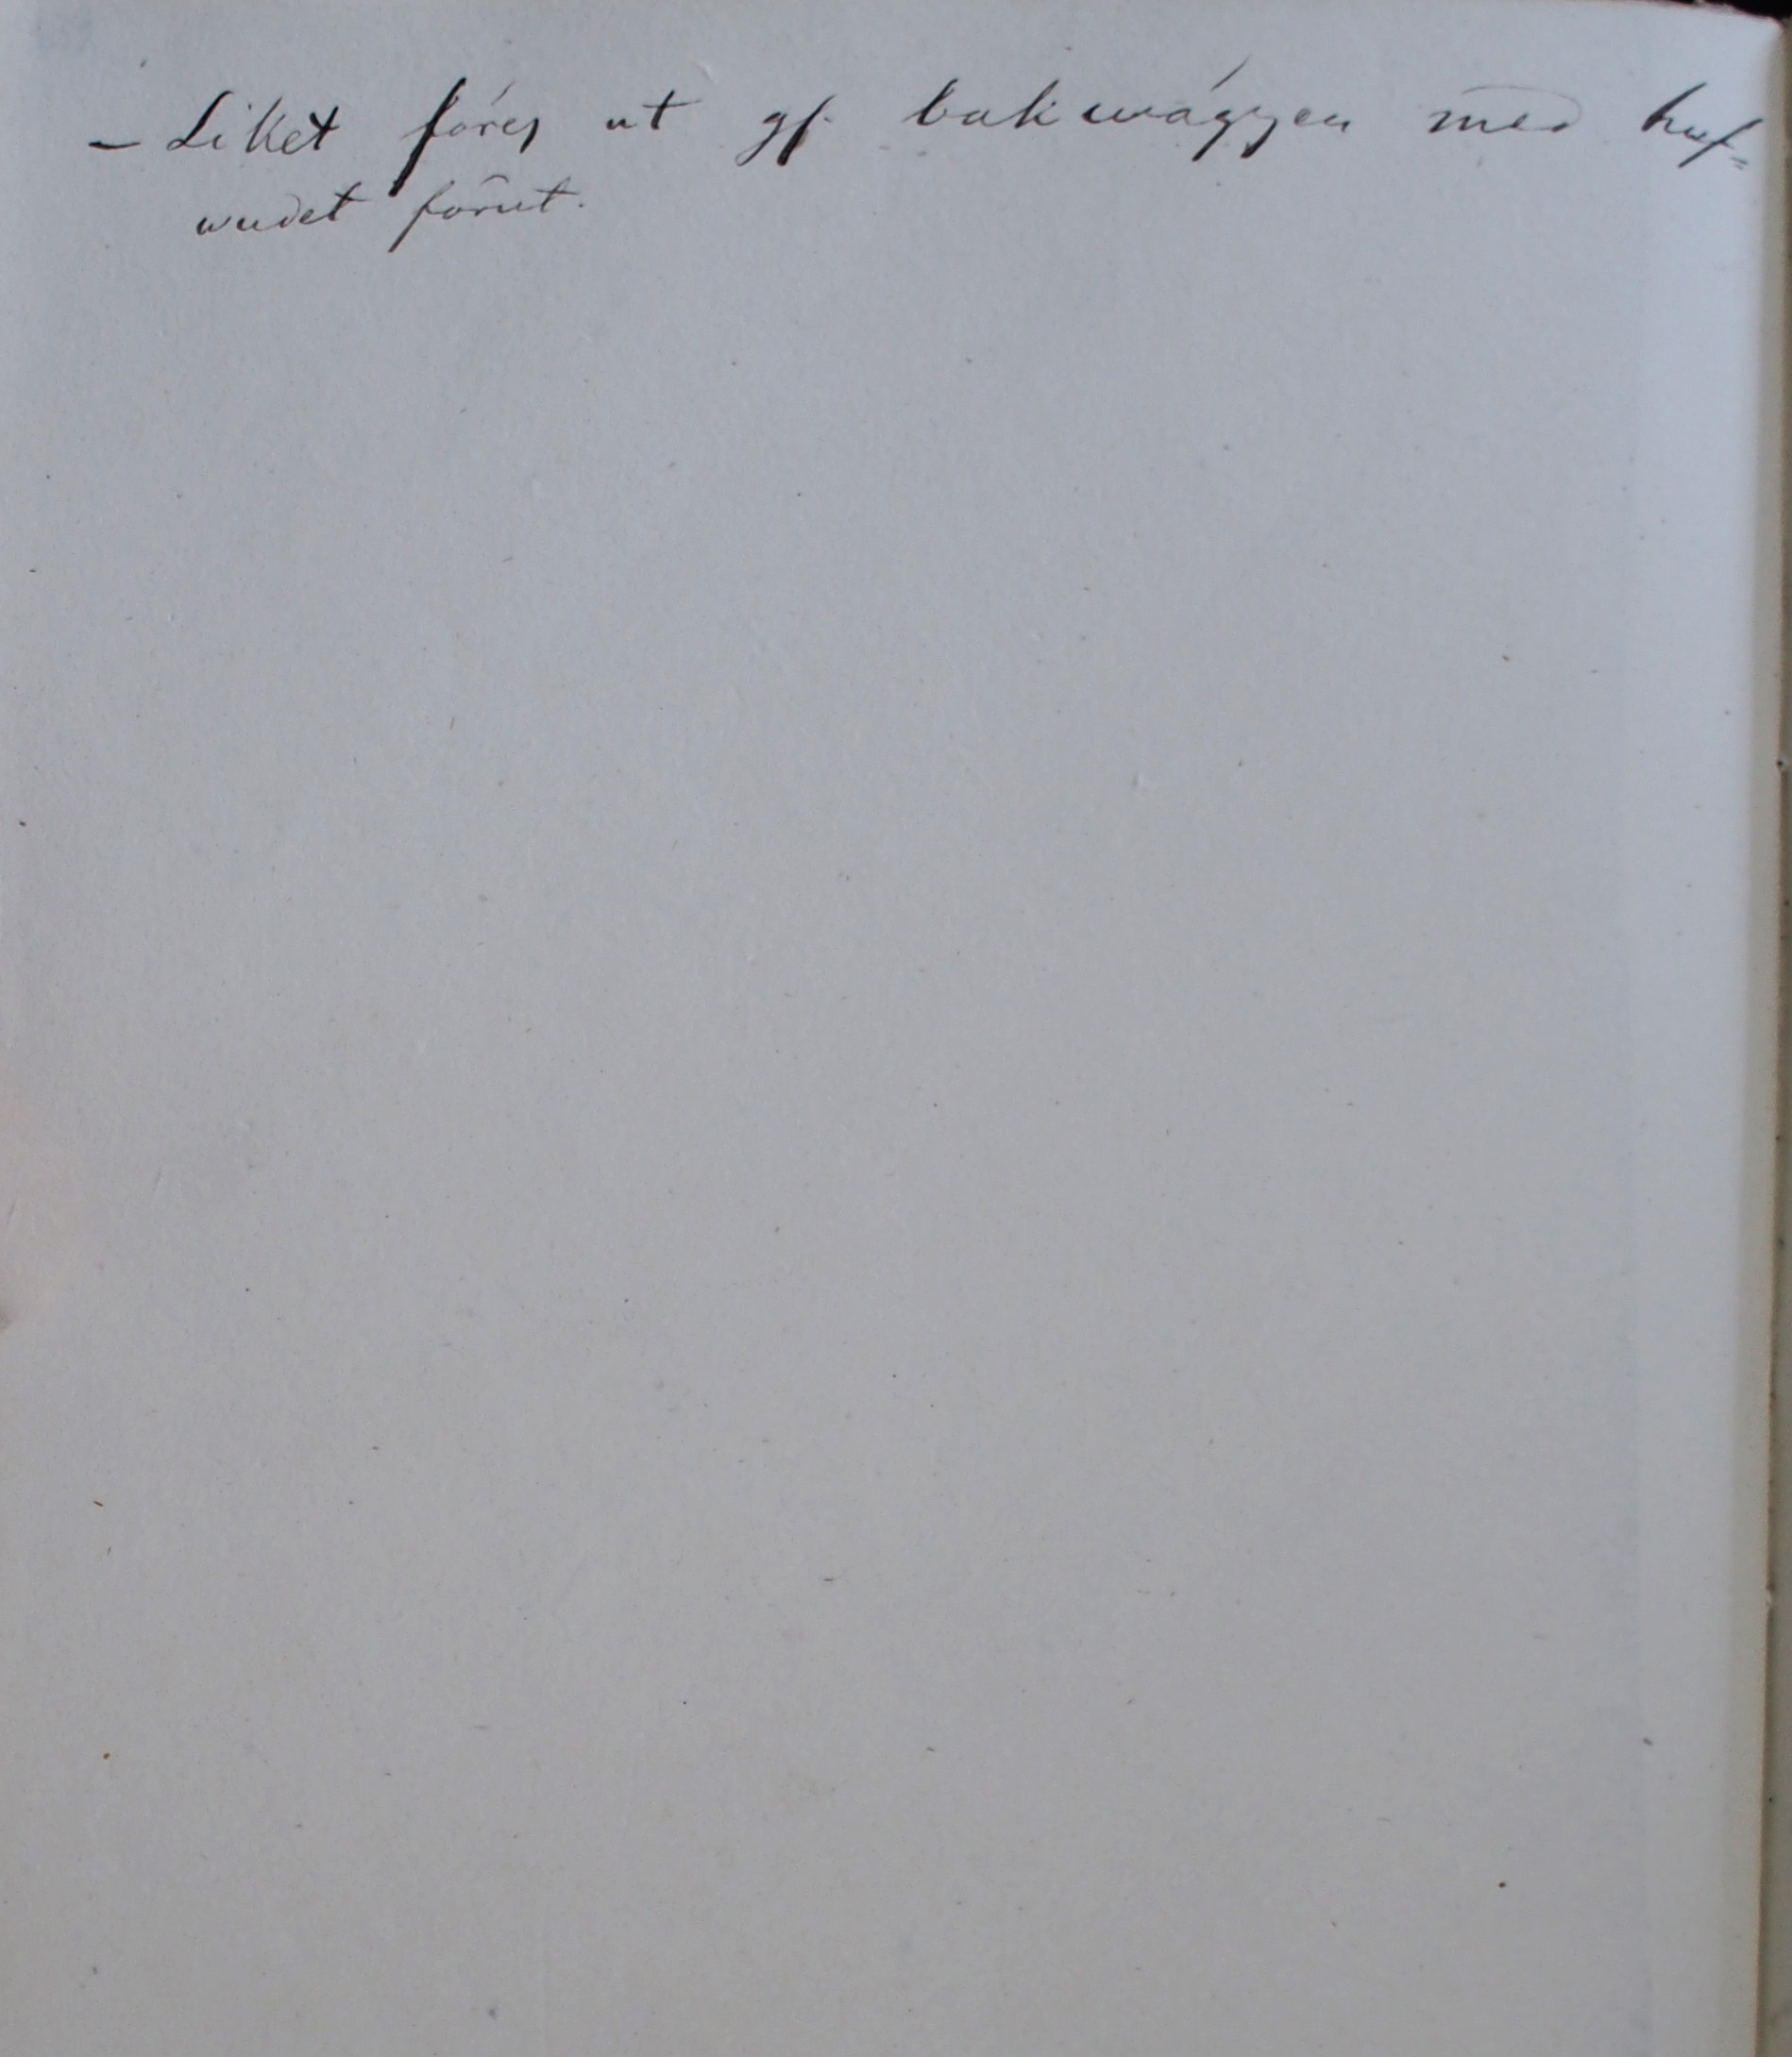 – Liket föres ut gf. bakwäggen med huf=
wudet förut.